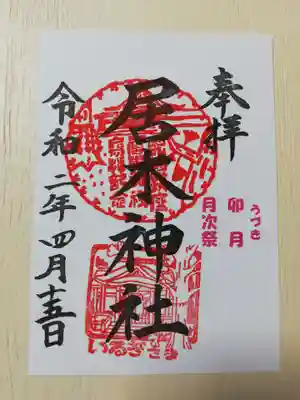 奉拝
うづき
卯月
月次祭
居木神社
いるぎさま
令和二年四月十五日